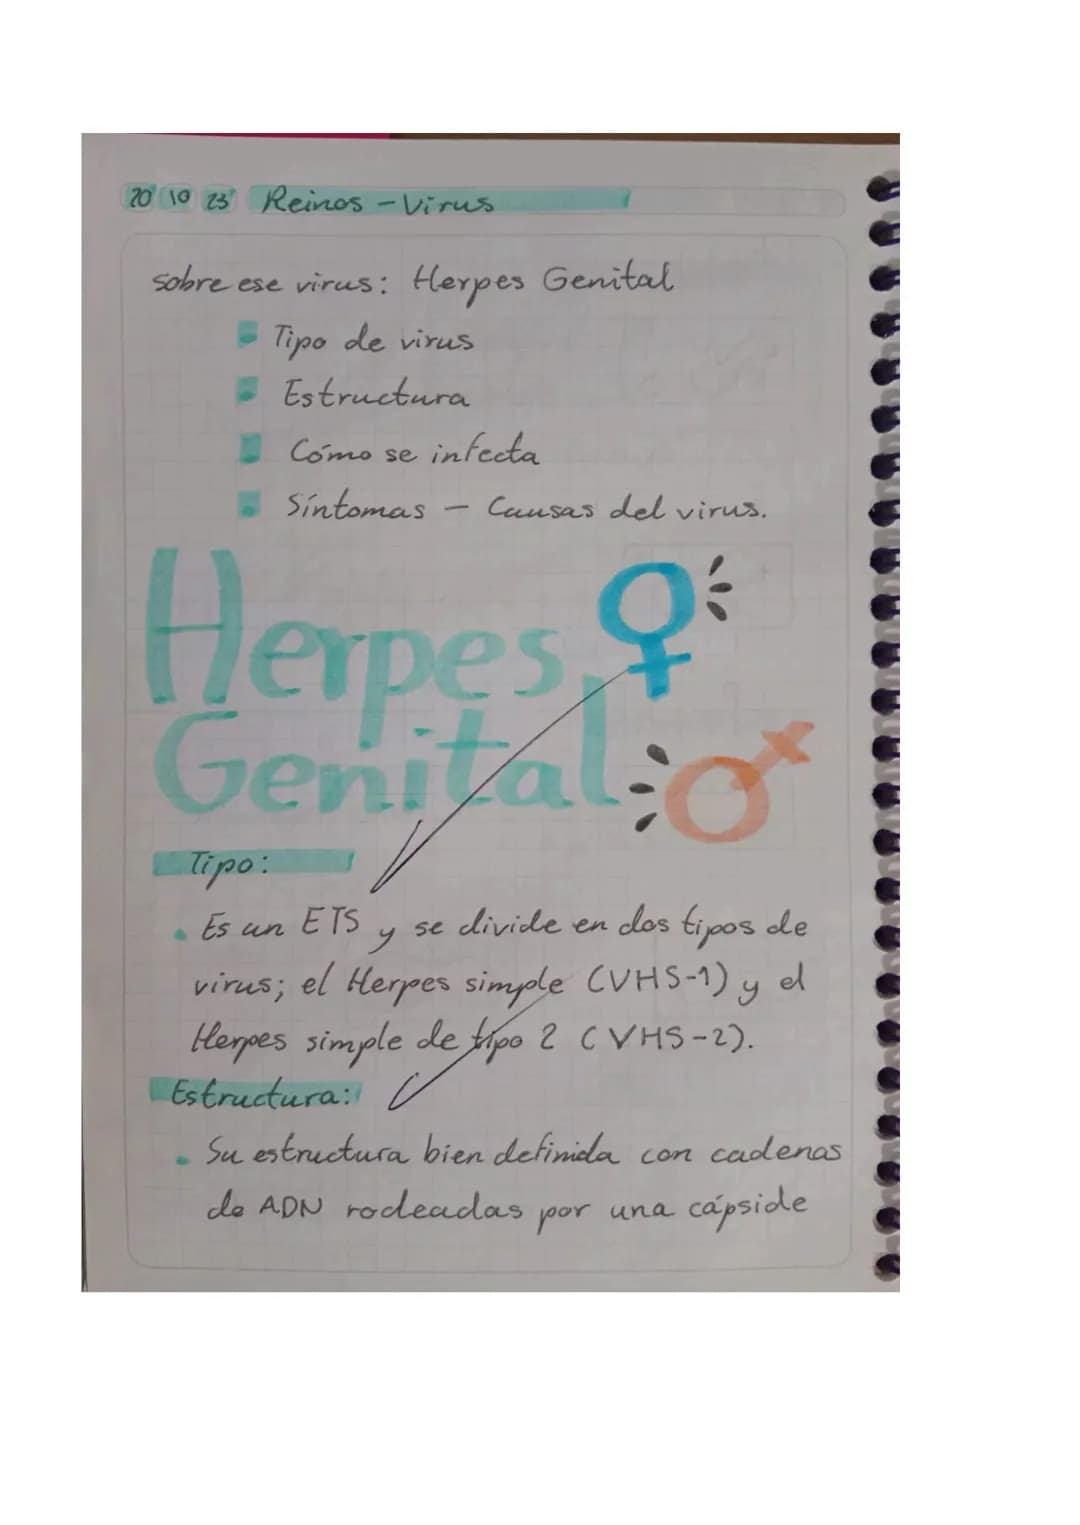 20 10 23 Reinos - Virus
sobre ese virus: Herpes Genital
Tipo de virus
Estructura
Cómo se infecta
Síntomas - Causas del virus.
Herpes
Genital
Tipo:
Es un ETS y se divide en dos tipos de
virus; el Herpes simple (VHS-1) y el
Herpes simple de tipo 2 (VHS-2).
Estructura:
Su estructura bien definida con cadenas
de ADN rodeadas por una cápside